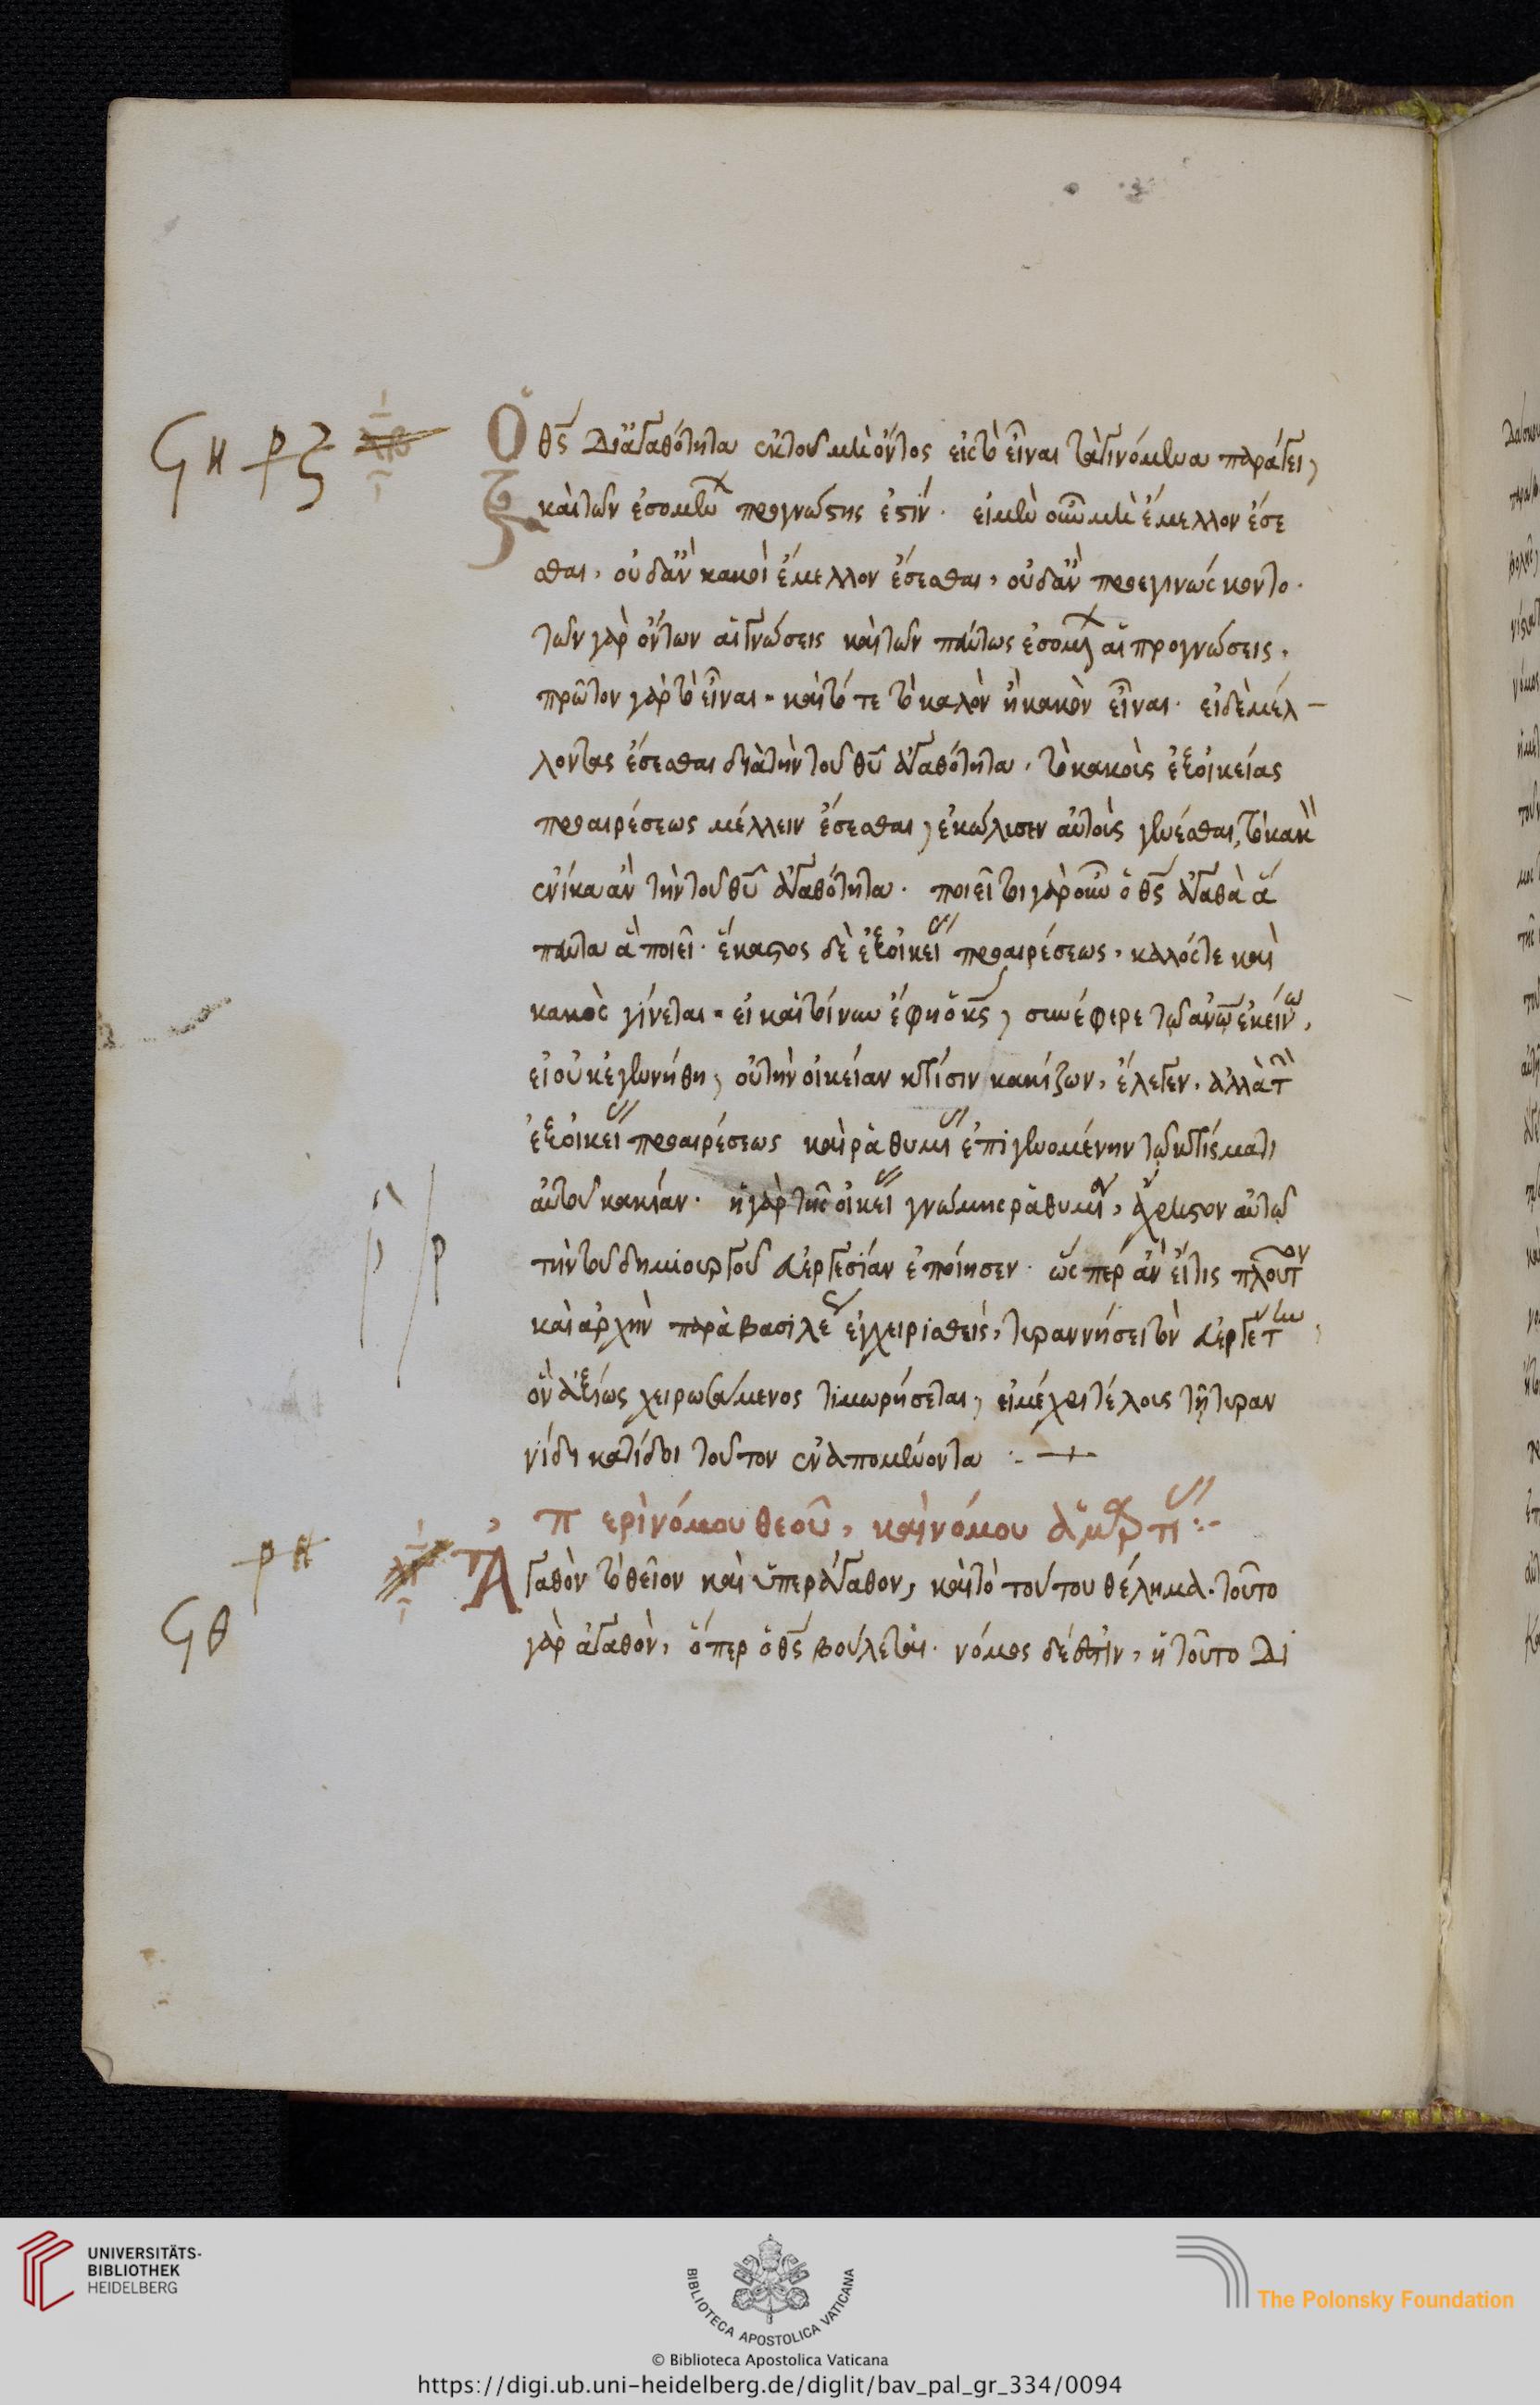 Ϟη ρζ
Ὁ θς δι' ἀγαθότητα ἐκ τοῦ μὴ ὄντος εἰς τὸ εἶναι τὰ γινόμενα παράγει,
καὶ τῶν ἐσομένων προγνώστης ἐστίν. εἰ μὲν οὖν μὴ ἔμελλον ἔσε
σθαι, οὐδ' ἂν κακοὶ ἔμελλον ἔσεσθαι, οὐδ' ἂν προεγινώσκοντο.
τῶν γὰρ ὄντων αἱ γνώσεις καὶ τῶν πάντως ἐσομένων αἱ προγνώσεις.
πρῶτον γὰρ τὸ εἶναι. καὶ τότε τὸ καλὸν ἢ κακὸν εἶναι. εἰ δὲ μέλ-
λοντας ἔσεσθαι διὰ τὴν τοῦ θυ ἀγαθότητα, τὸ κακοὺς ἐξ οἰκείας
προαιρέσεως μέλλειν ἔσεσθαι, ἐκώλυσεν αὐτοὺς γενέσθαι, τὸ κακὸν
ἐνίκα ἂν τὴν τοῦ θυ ἀγαθότητα. ποιεῖ τοιγαροῦν ὁ θς ἀγαθὰ ἅ
παντα ἃ ποιεῖ. ἕκαστος δὲ ἐξ οἰκείας προαιρέσεως, καλός τε καὶ
κακὸς γίνεται. εἰ καὶ τοίνυν ἔφη ὁ κς, συνέφερε τῷ ανῳ ἐκείνῳ,
εἰ οὐκ ἐγεννήθη, οὐ τὴν οἰκείαν κτίσιν κακίζων, ἔλεγεν, ἀλλὰ τὴν
ἐξ οἰκείας προαιρέσεως καὶ ῥαθυμίας ἐπιγενομένην τῷ κτίσματι
αὐτοῦ κακίαν. ἡ γὰρ τῆς οἰκείας γνώμης ῥαθυμία, ἄχρηστον αὐτῷ
τὴν τοῦ δημιουργοῦ εὐεργεσίαν ἐποίησεν. ὥσπερ ἂν εἴ τις πλοῦτον
καὶ ἀρχὴν παρὰ βασιλέως ἐγχειρισθεὶς, τυραννήσει τὸν εὐεργέτην
ὃν ἀξίως χειρωσάμενος τιμωρήσεται, εἰ μέχρι τέλους τῇ τυραν
νίδι κατίδοι τοῦτον ἐναπομένοντα :-
Περὶ νόμου θεοῦ, καὶ νόμου ἁμαρτίας :-
ρη
Ϟθ
Ἀγαθὸν τὸ θεῖον καὶ ὑπεράγαθον, καὶ τὸ τούτου θέλημα. τοῦτο
γὰρ ἀγαθὸν, ὅπερ ὁ θς βούλεται. νόμος δέ ἐστιν, ἡ τοῦτο δι
UNIVERSITÄTS-
BIBLIOTHEK
HEIDELBERG
BIBLIOTECA APOSTOLICA VATICANA
The Polonsky Foundation
© Biblioteca Apostolica Vaticana
https://digi.ub.uni-heidelberg.de/diglit/bav_pal_gr_334/0094